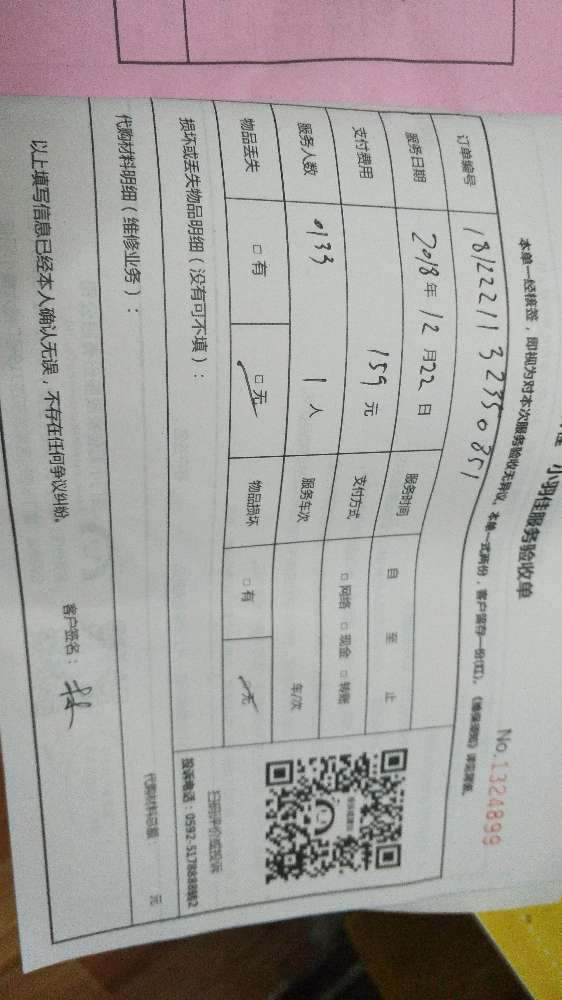 小羽佳服务验收单
No.1324899
本单一经核签，即视为对本次服务验收无异议，本单一式两份，客户留存一份(红)，
订单编号 1812221132350851
服务日期 2018年12月22日 服务时间 自 至 止
支付费用 159元 支付方式 □网络 □现金 □转账
服务人数 0133 1人 服务车次 车/次
物品丢失 □有 □无 物品损坏 □有 □无
损坏或丢失物品明细（没有可不填）：
扫码评价或投诉
代购材料明细（维修业务）：
代购材料总额： 元
以上填写信息已经本人确认无误，不存在任何争议纠纷。
客户签名：